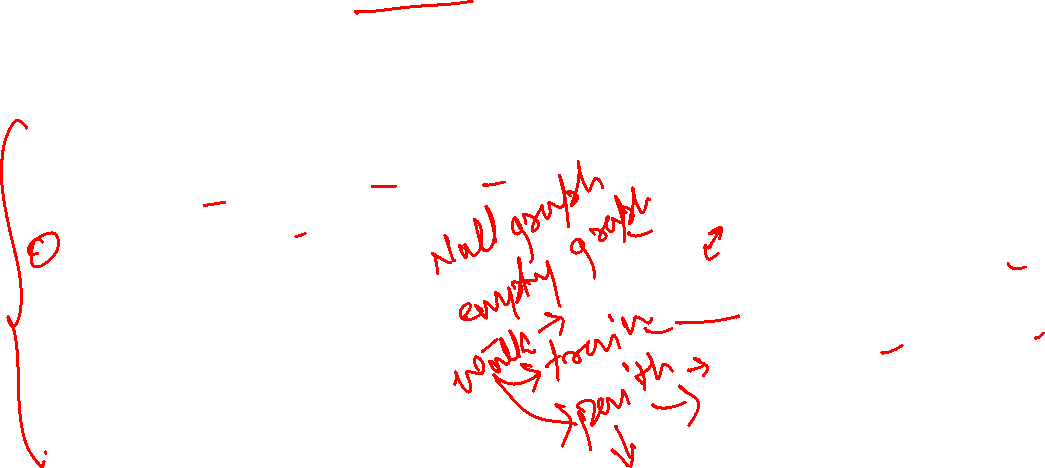 Null graph
empty graph
walk → train
path →